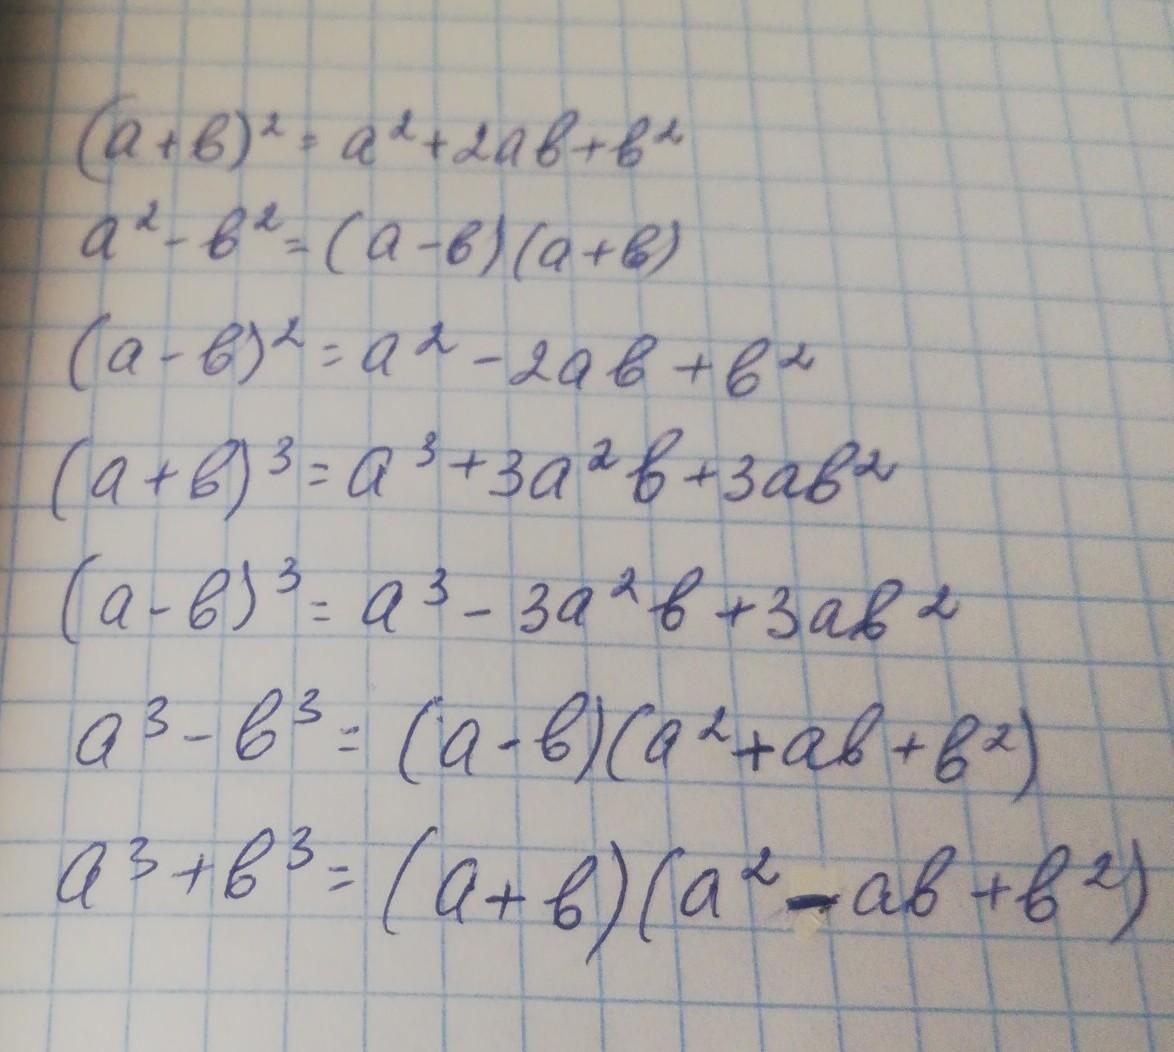 (a+b)² = a²+2ab+b²
a²-b²=(a-b)(a+b)
(a-b)²=a²-2ab+b²
(a+b)³=a³+3a²b+3ab²
(a-b)³=a³-3a²b+3ab²
a³-b³=(a-b)(a²+ab+b²)
a³+b³=(a+b)(a²-ab+b²)